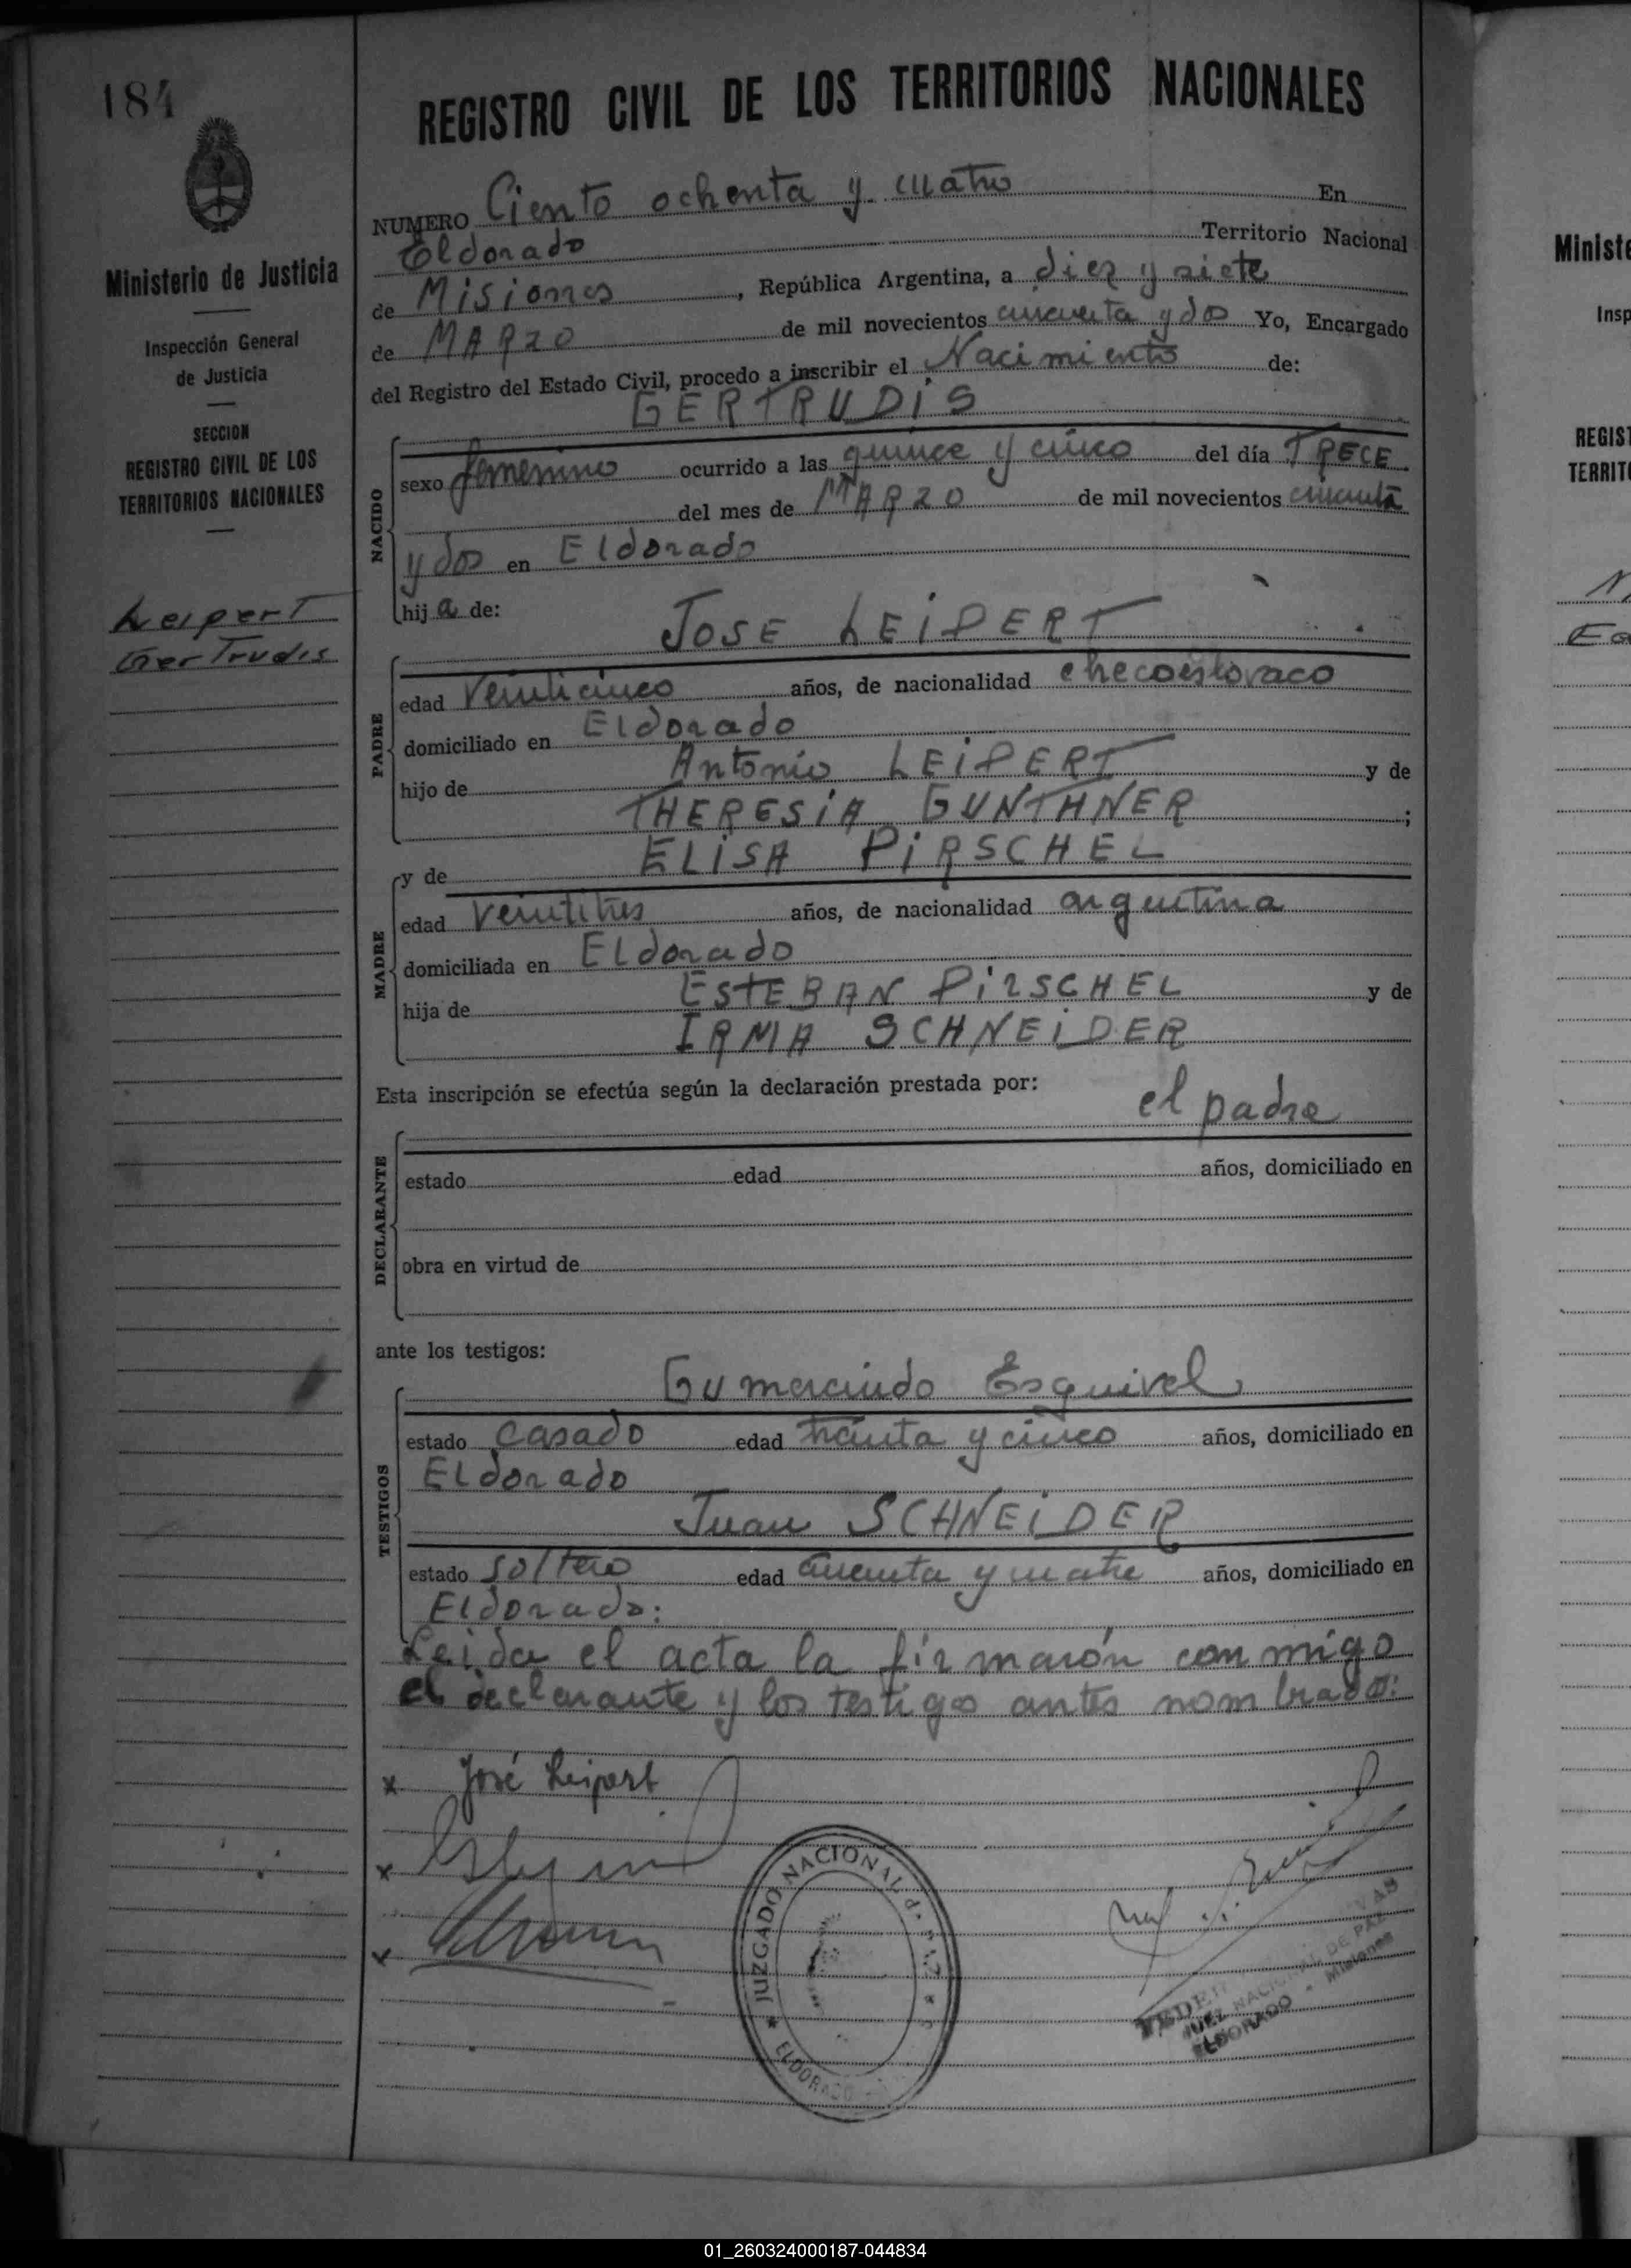 184
REGISTRO CIVIL DE LOS TERRITORIOS NACIONALES
Ministerio de Justicia
Inspección General
de Justicia
SECCION
REGISTRO CIVIL DE LOS
TERRITORIOS NACIONALES
Leipert
Gertrudis
NUMERO Ciento ochenta y cuatro En
Eldorado Territorio Nacional
de Misiones, República Argentina, a diez y siete
de MARZO de mil novecientos cincuenta y dos Yo, Encargado
del Registro del Estado Civil, procedo a inscribir el Nacimiento de:
GERTRUDIS
NACIDO
sexo femenino ocurrido a las quince y cinco del día TRECE
del mes de MARZO de mil novecientos cincuenta
y dos en Eldorado
hija de:
JOSE LEIPERT
PADRE
edad veinticinco años, de nacionalidad checoeslovaco
domiciliado en Eldorado
hijo de Antonio LEIPERT y de
THERESIA GUNTHNER ;
y de ELISA PIRSCHEL
MADRE
edad veintitres años, de nacionalidad argentina
domiciliada en Eldorado
hija de ESTEBAN PIRSCHEL y de
IRMA SCHNEIDER
Esta inscripción se efectúa según la declaración prestada por:
el padre
DECLARANTE
estado edad años, domiciliado en
obra en virtud de
ante los testigos:
Gumercindo Esquivel
TESTIGOS
estado casado edad treinta y cinco años, domiciliado en
Eldorado
Juan SCHNEIDER
estado soltero edad cuarenta y cuatro años, domiciliado en
Eldorado:
Leida el acta la firmarón conmigo
el declarante y los testigos antes nombrados:
x José Leipert
x
x
JUZGADO NACIONAL de PAZ
ELDORADO
JUEZ NACIONAL DE PAZ
ELDORADO - Misiones
Ministe
Insp
REGIST
TERRIT
01_260324000187-044834